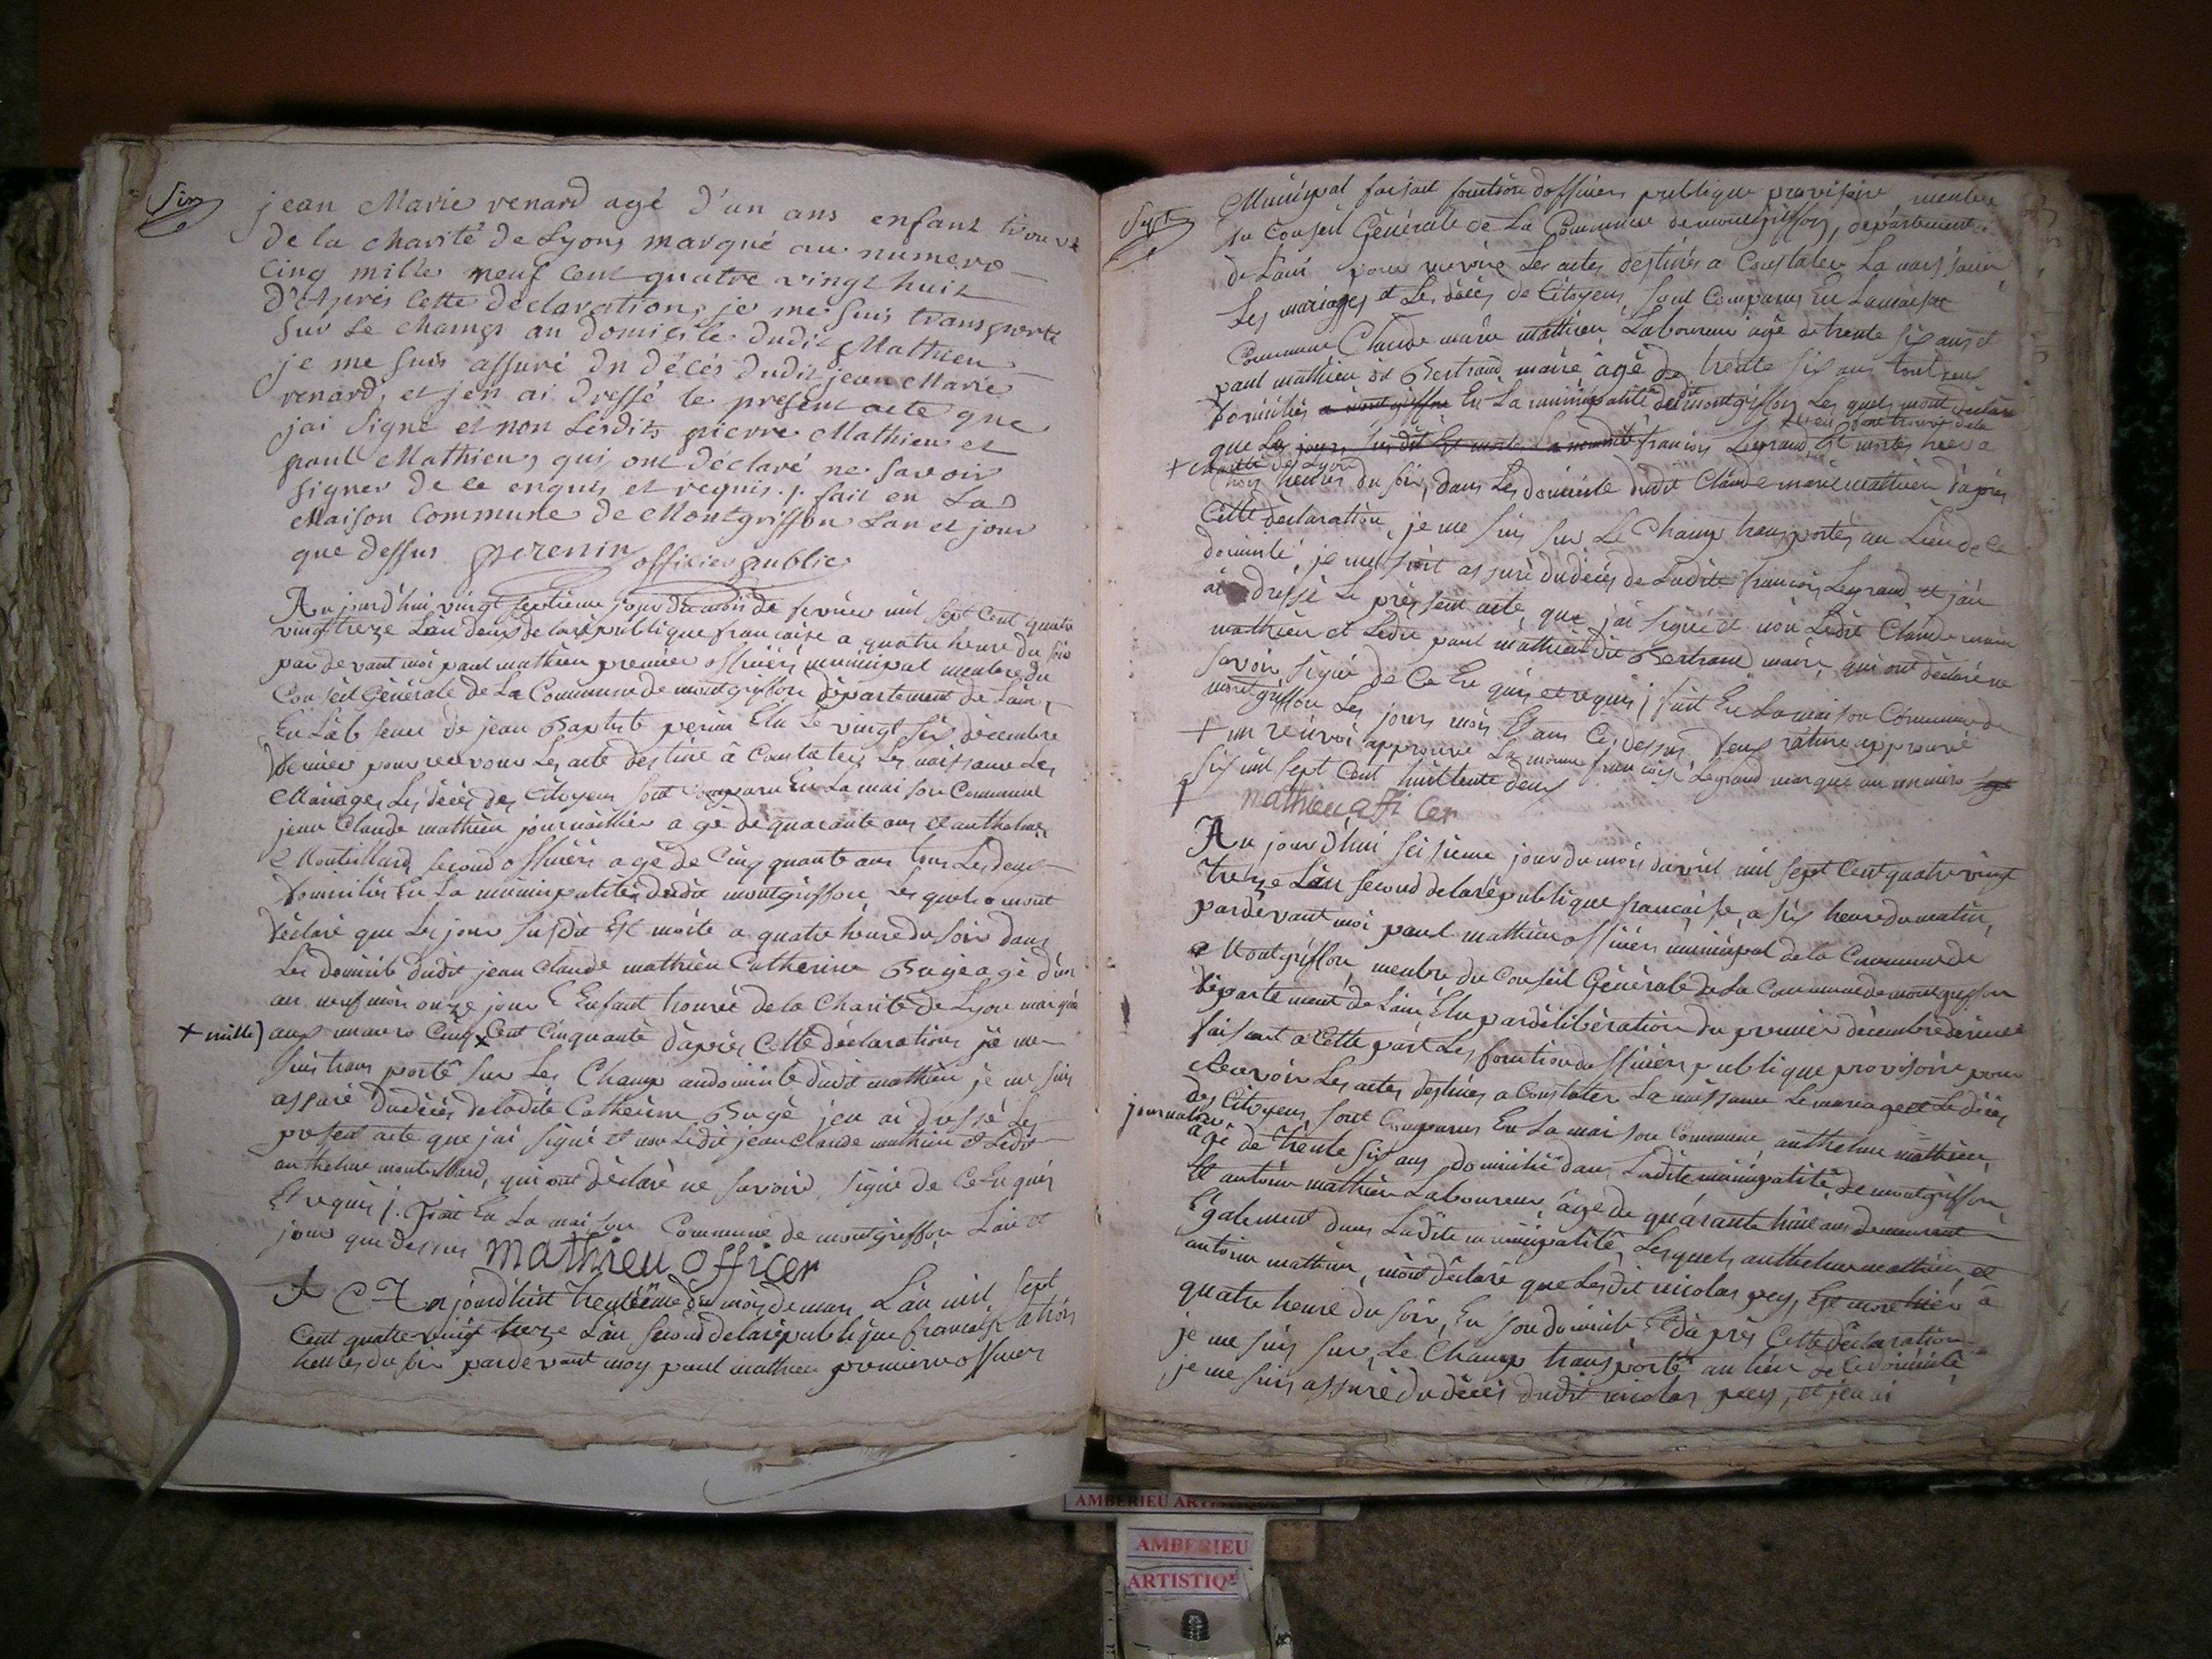 Six
jean Marie renard agé d'un ans enfant trouvé
de la charité de Lyons marqué au numero
cinq mille neuf cent quatre vingt huit
D'Après cette déclaration, je me suis transporté
sur le champs au domicile dudit Mathieu
je me suis assuré du décès dudit jean Marie
renard, et j'en ai dressé le present acte que
jai Signé et non Lesdits pierre Mathieu et
paul Mathieu, qui ont déclaré ne savoir
signer de ce enquis et requis ./. fait en La
Maison Commune de Montgriffon Lan et jour
que dessus perenin officier public
Aujourd'hui vingt septieme jour du mois de fevrier mil sept Cent quatre
vingt treze Lan deux de la republique francaise a quatre heure du soir
par devant moi paul mathieu premier officiers municipal membre du
Conseil Générale de La Commune de montgriffon département de Lain,
En Lab sence de jean Baptiste perenin Elu Le vingt six décembre
dernier pour recevoir Les acte destiné à Constater Les naissance Les
Mariages Les décès des Citoyens sont comparu En La maison Commune
jean Claude mathieu journaillier agé de quarante ans et anthelme
Montillard, second officiers agé de Cinqquante ans tous Les deux
domiciliés En La municipalité dudit montgriffon Les quels mont
déclaré que Les jour susdit Est morte a quatre heure du soir dans
Les domicile dudit jean claude mathieu Catherine Bugé agé d'un
an neuf mois onze jour Enfant trouvée de la Charité de Lyon marquée
+ mille) aux numero Cinq + Cent Cinquante d'après Cette déclaration je me
suis trans porté sur Les Champ au domicile dudit mathieu je me suis
assuré du décès de ladite Catherine Bugé jen ai dressé Les
present acte que jai signé et non Ledit jean claude mathieu et Ledit
anthelme montillard, qui ont déclaré ne savoir signé de Ce En quis
Et requis ./. Fait En La maison Commune de montgriffon Lan et
jour que dessus mathieu officer
Aujourdhui trentième du mois de mars Lan mil sept
Cent quatre vingt treze Lan second de la republique francaise a trois
heures du soir pardevant moy paul mathieu premier officier
Sept
Municipal faisant fonction dofficiers publique provisoire, membre
du Conseil Générale de La Commune de montgriffon, departement
de Lain pour recevoir Les actes destinés a Constater La naissance,
Les mariages et Les décès de Citoyens, sont Comparus En La maison
Commune Claude marie mathieu Laboureur agé de trente six ans et
paul mathieu dit Bertrand maire âgé de trente six ans tout deux
domiciliés a montgriffon En La municipalité dudit montgriffon Les quels mont déclaré
que Les jours susdit Est morte La nommée francois Legrand, Est morte hier a
+ charité de Lyon
trois heures du soir, dans Les domicile dudit Claude marie mathieu d'après
Cette déclaration, je me suis sur Le Champ transportés au Lieu de ce
domicile, je me suis assuré du décès de Ladite francois Legrand et j'en
ai dressé Le présent acte, que j'ai signé et non Ledit Claude marie
mathieu et Ledit paul mathieu dit Bertrand maire, qui ont déclaré ne
savoir signé de Ce En quis et requis ./. fait En La maison Commune de
montgriffon Les jours mois Et ans Ci dessus deux rature approuvé
+ un renvoi approuvé La nommé francoise Legrand marque au numero
six mil sept Cent huittente deux
mathieu officer
Au jourd'hui seisieme jour du mois davril mil sept Cent quatre vingt
treze Lan second de la republique francaise, a six heure du matin,
pardevant moi paul mathieu officiers municipal de la Commune de
Montgriffon, membre du Conseil Générale de La Commune de montgriffon
département de Lain Elu par délibération du premier décembre dernier
faisant a Cette part Les fonction dofficiers publique provisoire pour
Recevoir Les actes destinés a Constater La naissance Le mariage et Le décès
des Citoyens, sont Comparus En La maison Commune, anthelme mathieu,
journalier
agé de trente six ans domicilié dans Ladite municipalité de montgriffon
Et antoine mathieu Laboureur, âgé de quárante huit ans demeurant
Egalement dans Ladite municipalité, Lesquels anthelme mathieu, et
antoine mathieu, mont déclaré que Lesdit nicolas pey, Est mort hier à
quatre heure du soir, En son domicile, d'après Cette déclaration
je me suis sur Le Champ transporté au lieu de Ce domicile
je me suis assuré du décès dudit nicolas pey, et jen ai
AMBERIEU
AMBERIEU
ARTISTIQ